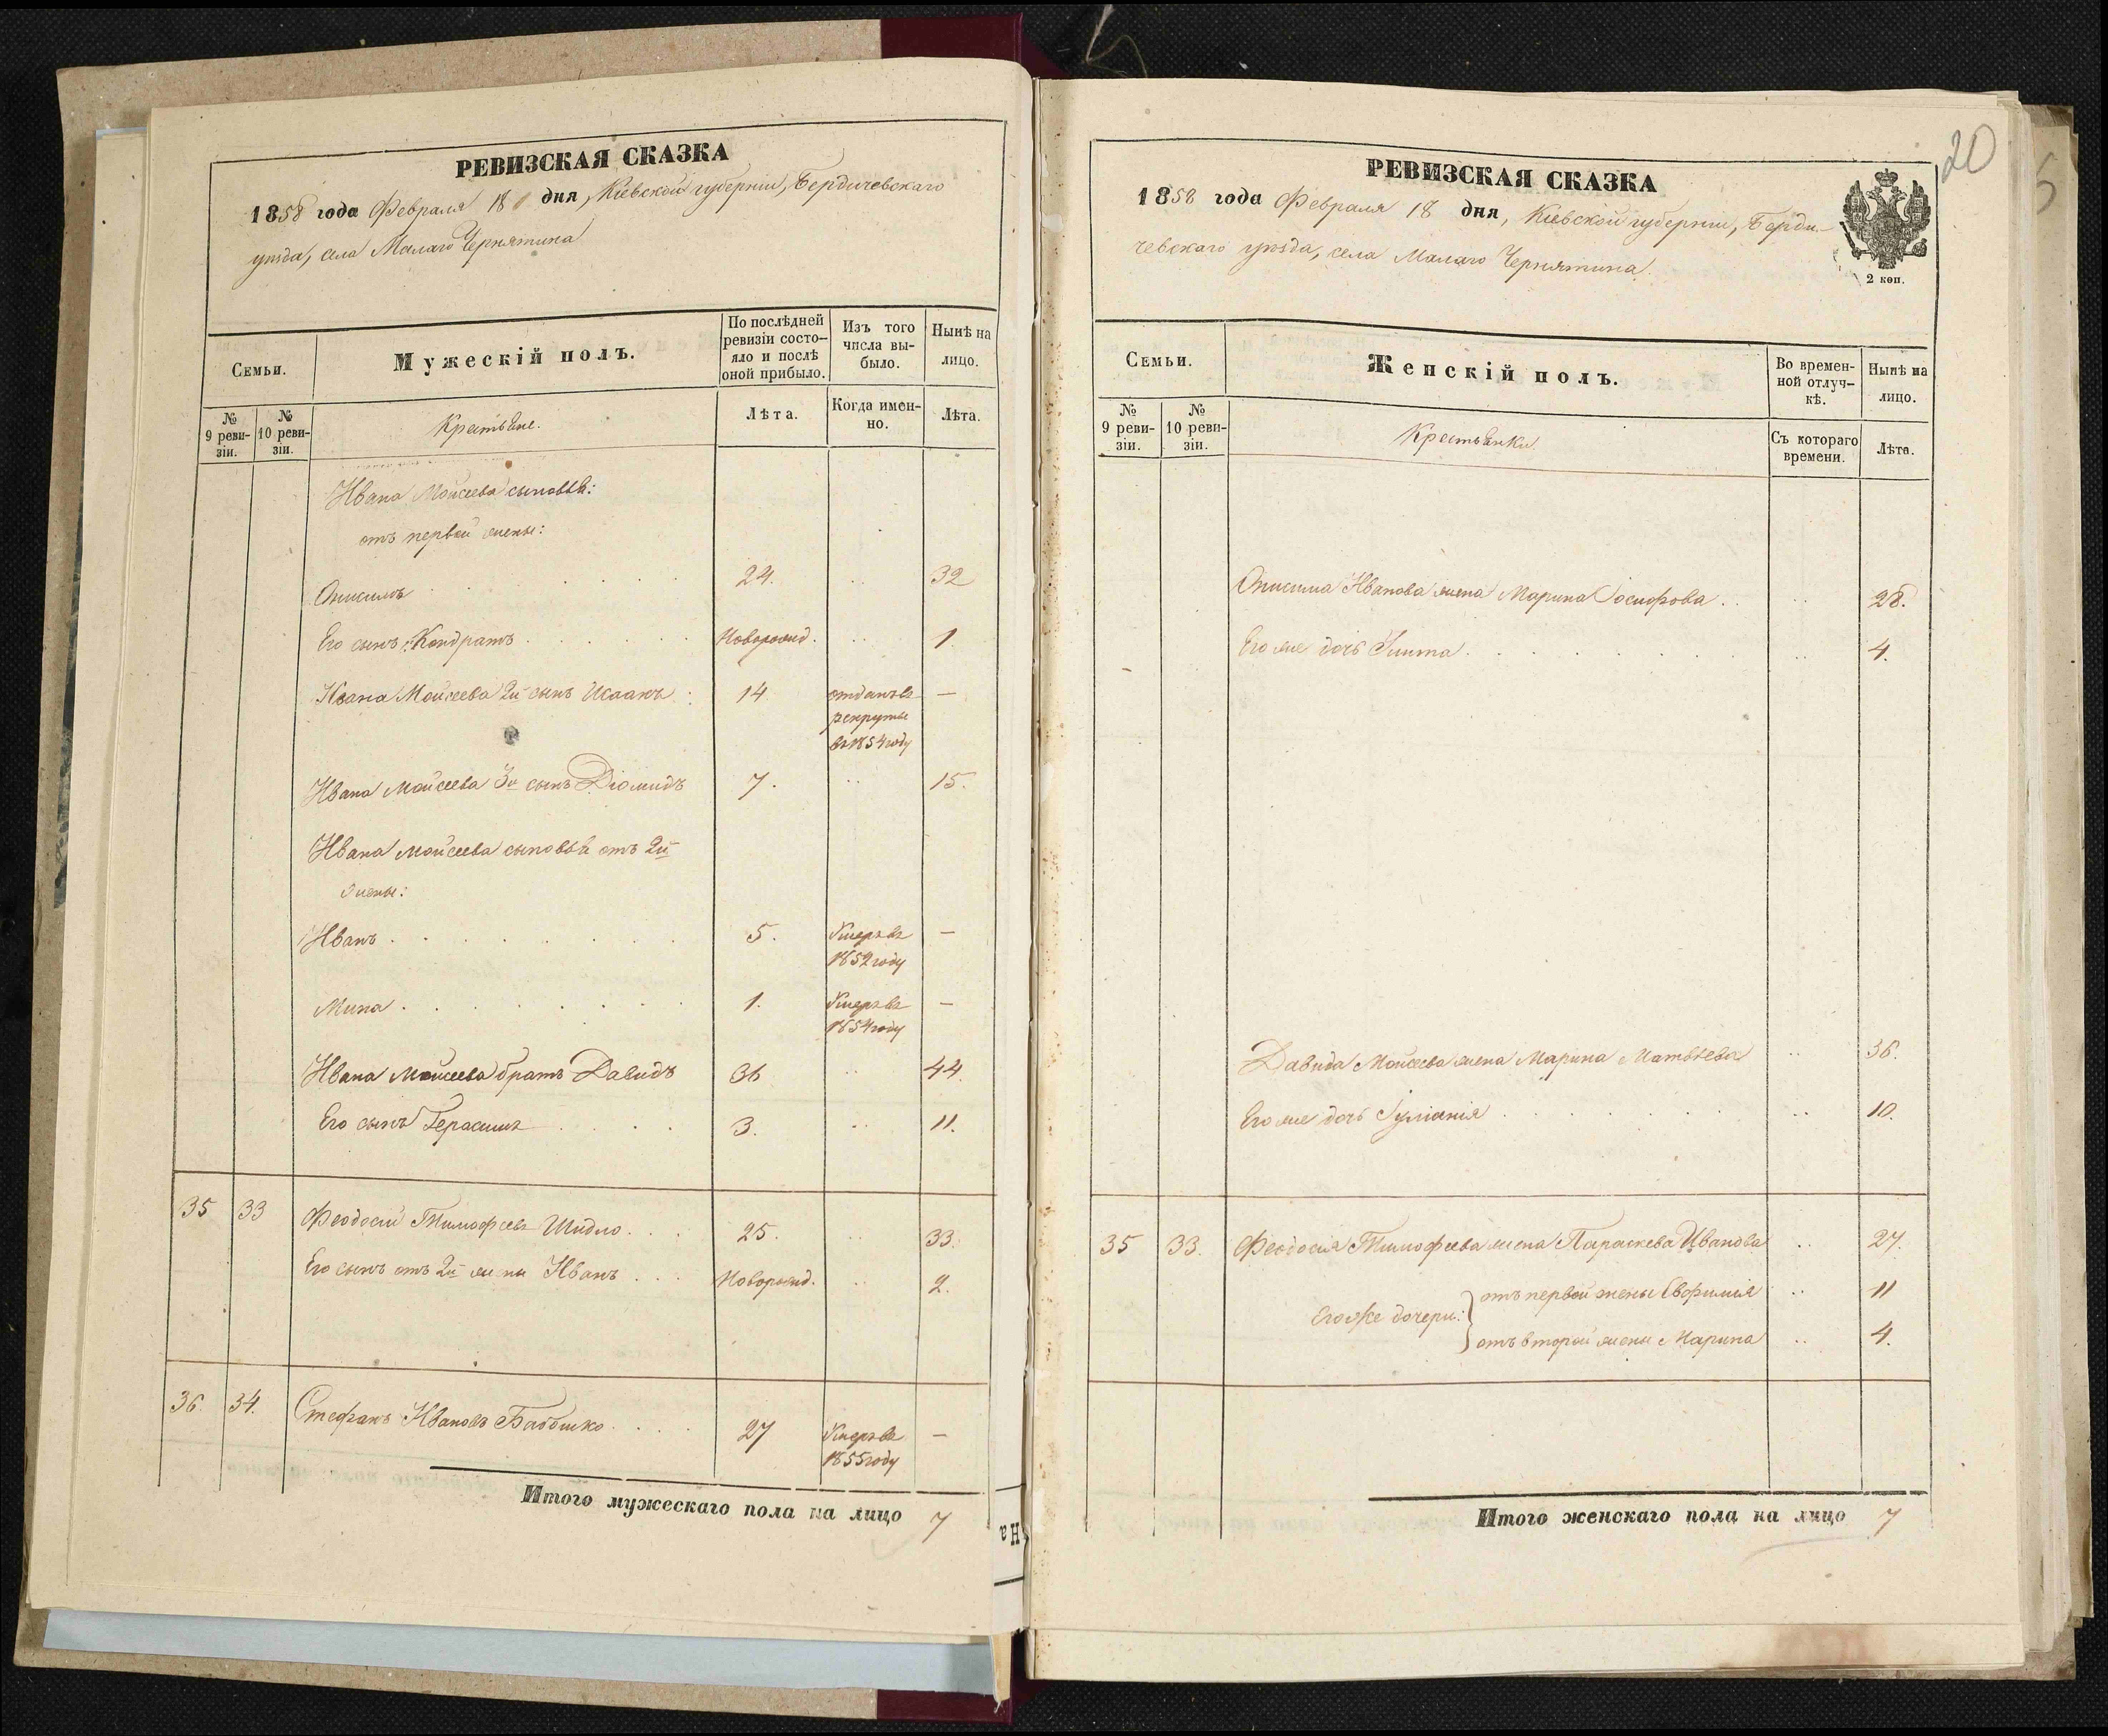 РЕВИЗСКАЯ СКАЗКА
1858 года Февраля 18 дня, Кіевской губерніи, Бердичевскаго
уѣзда, села Малаго Чернятина
Семьи.
Мужескій полъ.
По послѣдней
ревизіи состо-
яло и послѣ
оной прибыло.
Изъ того
числа вы-
было.
Нынѣ на
лицо.
№
9 реви-
зіи.
№
10 реви-
зіи.
Крестьяне.
Лѣта.
Когда имен-
но.
Лѣта.
Ивана Моисеева сыновья:
отъ первой жены:
Онисимъ 24. 32
Его сынъ Кондратъ Новорожд. 1.
Ивана Моисеева 2й сынъ Исаакъ 14 отданъ въ —
рекруты
въ 1854 году
Ивана Моисеева 3й сынъ Діомидъ 7. 15.
Ивана Моисеева сыновья отъ 2й
жены:
Иванъ 5. Умеръ въ —
1852 году
Мина 1. Умеръ въ —
1854 году
Ивана Моисеева братъ Давидъ 36 44.
Его сынъ Герасимъ 3. 11.
35 33 Феодосій Тимофеевъ Шидло 25. 33.
Его сынъ отъ 2й жены Иванъ Новорожд. 2.
36. 34. Стефанъ Ивановъ 27 Умеръ въ —
1855 году
Итого мужескаго пола на лицо 7
На
20
РЕВИЗСКАЯ СКАЗКА
1858 года Февраля 18 дня, Кіевской губерніи, Берди-
чевскаго уѣзда, села Малаго Чернятина.
2 коп.
Семьи.
Женскій полъ.
Во времен-
ной отлуч-
кѣ.
Нынѣ на
лицо.
№
9 реви-
зіи.
№
10 реви-
зіи.
Крестьянки.
Съ котораго
времени.
Лѣта.
Онисима Иванова жена Марина Іосифова 28.
Его же дочь 4.
Давида Моисеева жена Марина Матвѣева 36.
Его же дочь Іуліанія 10.
35 33. Феодосія Тимофеева жена Параскева Иванова 27.
Его же дочери: отъ первой жены Евфимія 11
отъ второй жены Марина 4.
Итого женскаго пола на лицо 7